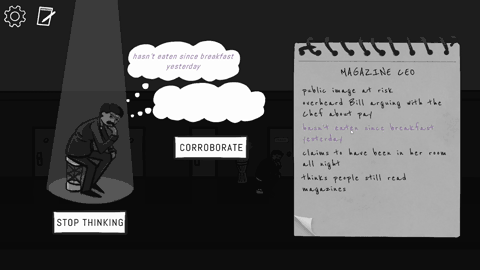 hasn't eaten since breakfast
yesterday
CORROBORATE
STOP THINKING
MAGAZINE CEO
public image at risk
overheard Bill arguing with the
Chef about pay
hasn't eaten since breakfast
yesterday
claims to have been in her room
all night
thinks people still read
magazines